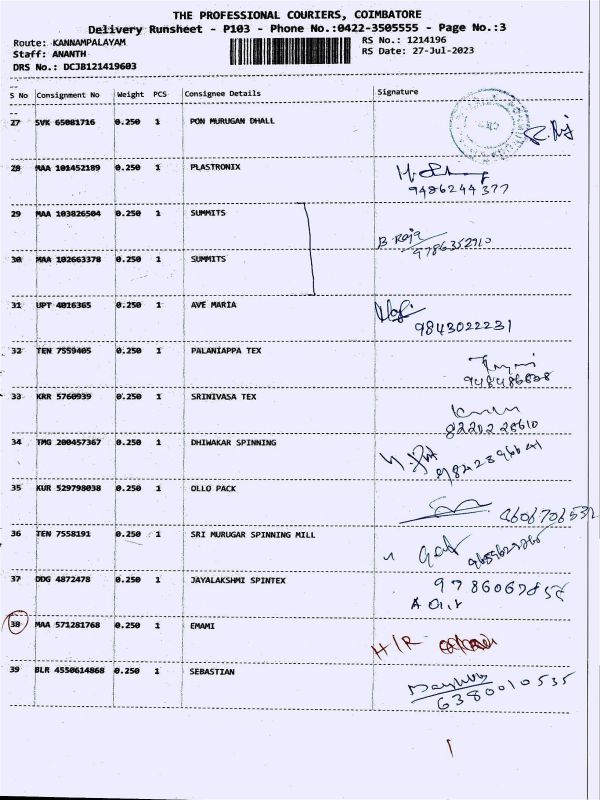 THE PROFESSIONAL COURIERS, COIMBATORE
Delivery Runsheet - P103 - Phone No.:0422-3505555 - Page No.:3
Route: KANNAMPALAYAM
RS No.: 1214196
Staff: ANANTH
RS Date: 27-Jul-2023
DRS No.: DCJB121419603
S No Consignment No Weight PCS Consignee Details Signature
27 SVK 65081716 0.250 1 PON MURUGAN DHALL
28 MAA 101452189 0.250 1 PLASTRONIX
9486244377
29 MAA 103826504 0.250 1 SUMMITS
B. Raja
9786352910
30 MAA 102663378 0.250 1 SUMMITS
31 UPT 4016365 0.250 1 AVE MARIA
9843022231
32 TEN 7559405 0.250 1 PALANIAPPA TEX
33 KRR 5760939 0.250 1 SRINIVASA TEX
8220228610
34 TMG 200457367 0.250 1 DHIWAKAR SPINNING
35 KUR 529798038 0.250 1 OLLO PACK
36 TEN 7558191 0.250 1 SRI MURUGAR SPINNING MILL
37 DDG 4872478 0.250 1 JAYALAKSHMI SPINTEX
38 MAA 571281768 0.250 1 EMAMI
H/R
39 BLR 4550614868 0.250 1 SEBASTIAN
6380010535